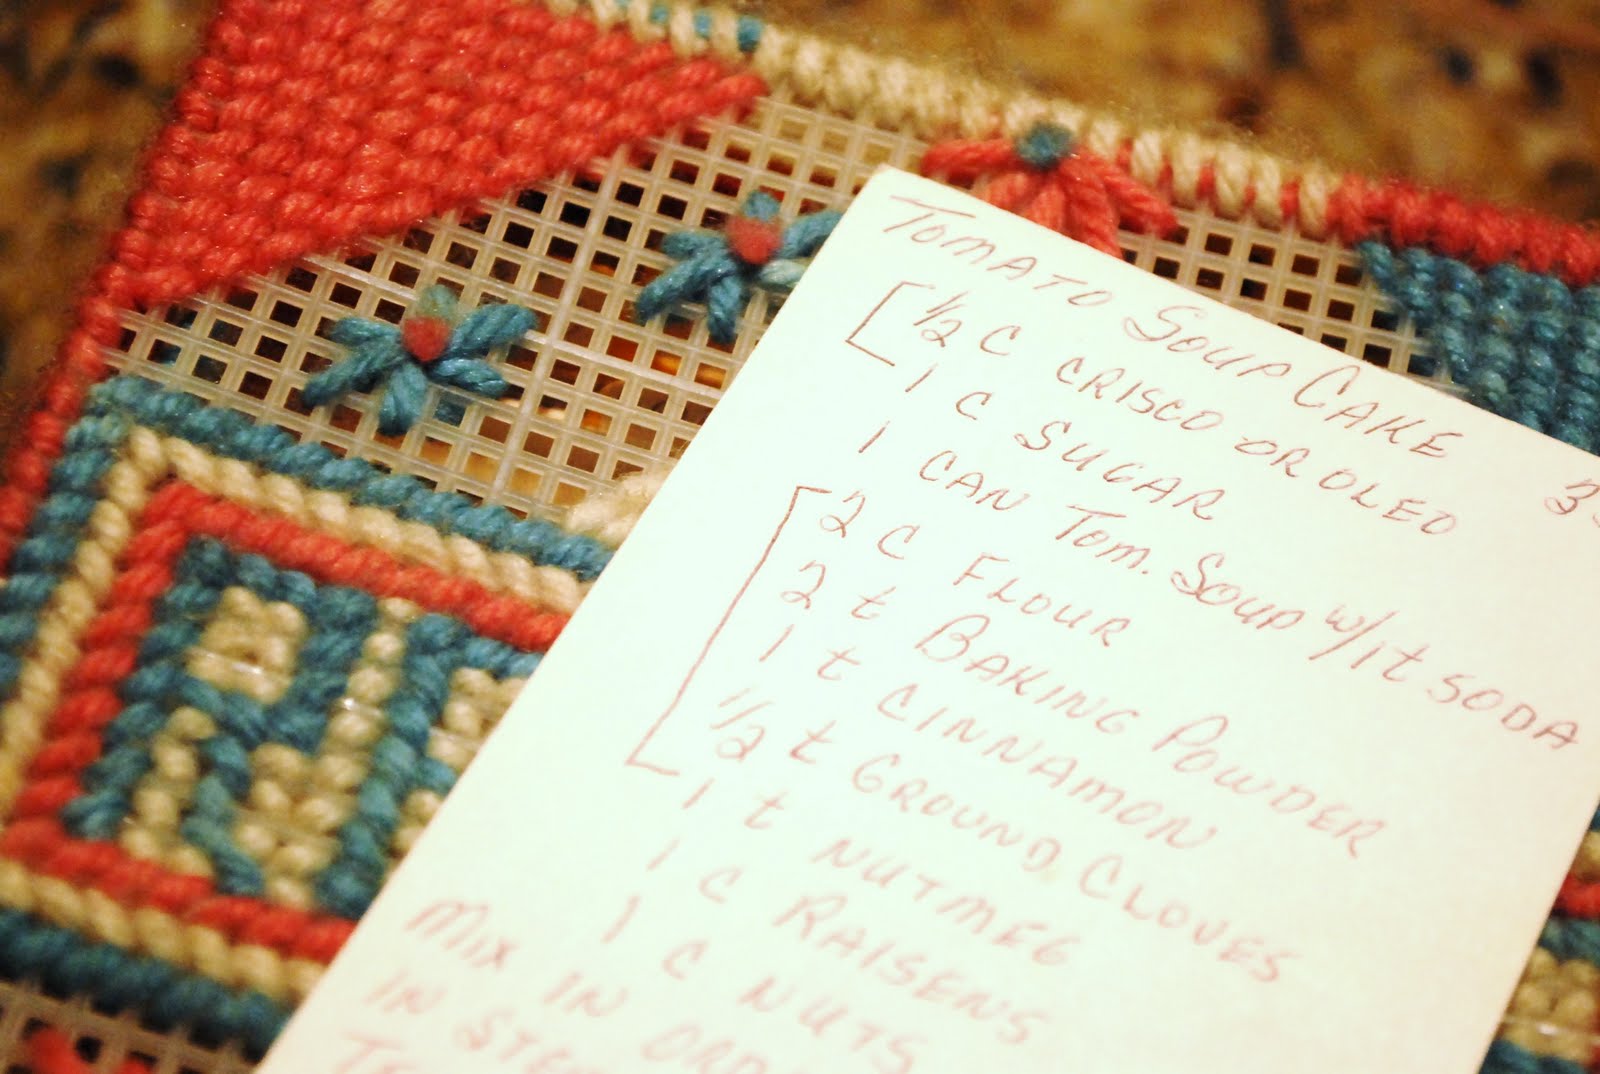 TOMATO SOUP CAKE
½ C CRISCO OR OLEO
1 C SUGAR
1 CAN TOM. SOUP W/1t SODA
2 C FLOUR
2 t BAKING POWDER
1 t CINNAMON
½ t GROUND CLOVES
1 t NUTMEG
1 C RAISENS
1 C NUTS
MIX IN
IN